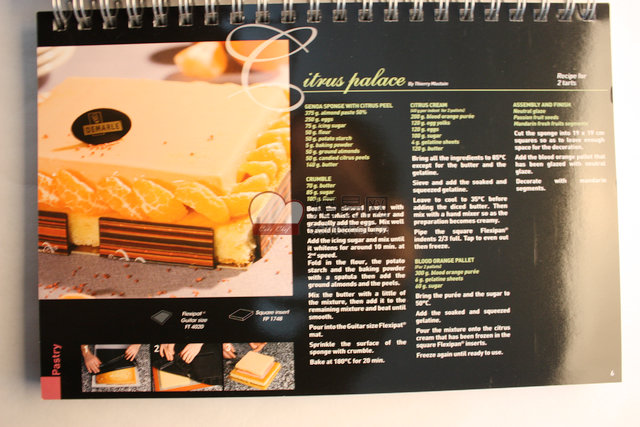 Citrus palace
By Thierry Mostain
Recipe for
2 tarts
DEMARLE
GENOA SPONGE WITH CITRUS PEEL
375 g. almond paste 50%
250 g. eggs
75 g. icing sugar
50 g. flour
50 g. potato starch
5 g. baking powder
50 g. ground almonds
50 g. candied citrus peels
CRUMBLE
70 g. butter
85 g. sugar
100 g. flour
Beat the almond paste with
the flat whisk of the mixer and
gradually add the eggs. Mix well
to avoid it becoming lumpy.
Add the icing sugar and mix until
it whitens for around 10 min. at
2nd speed.
Fold in the flour, the potato
starch and the baking powder
with a spatula then add the
ground almonds and the peels.
Mix the butter with a little of
the mixture, then add it to the
remaining mixture and beat until
smooth.
Pour into the Guitar size Flexipat®
mat.
Sprinkle the surface of the
sponge with crumble.
Bake at 180°C for 20 min.
CITRUS CREAM
200 g. blood orange purée
120 g. egg yolks
120 g. eggs
100 g. sugar
4 g. gelatine sheets
120 g. butter
Bring all the ingredients to 85°C
except for the butter and the
gelatine.
Sieve and add the soaked and
squeezed gelatine.
Leave to cool to 35°C before
adding the diced butter. Then
mix with a hand mixer so as the
preparation becomes creamy.
Pipe the square Flexipan®
indents 2/3 full. Top to even out
then freeze.
BLOOD ORANGE PALLET
(For 2 pallets)
300 g. blood orange purée
6 g. gelatine sheets
60 g. sugar
Bring the purée and the sugar to
50°C.
Add the soaked and squeezed
gelatine.
Pour the mixture onto the citrus
cream that has been frozen in the
square Flexipan® inserts.
Freeze again until ready to use.
ASSEMBLY AND FINISH
Neutral glaze
Passion fruit seeds
Mandarin fresh fruits segments
Cut the sponge into 19 x 19 cm
squares so as to leave enough
space for the decoration.
Add the blood orange pallet that
has been glazed with neutral
glaze.
Decorate with mandarin
segments.
Flexipat®
Guitar size
FT 4020
Square insert
FP 1748
Pastry
2
6